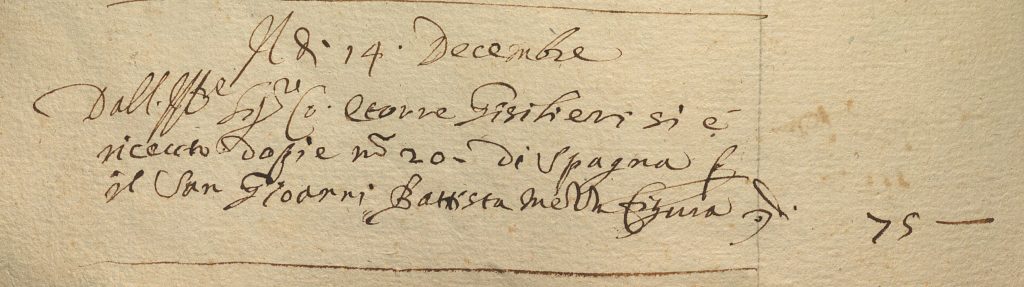 Il di 14. Decembre
Dall. Ill.re Sig.r Co. Ettorre Gisilieri si è
riceuto dopie n.o 20 - di Spagna p
il San Gioanni Battista meza figura 75 —